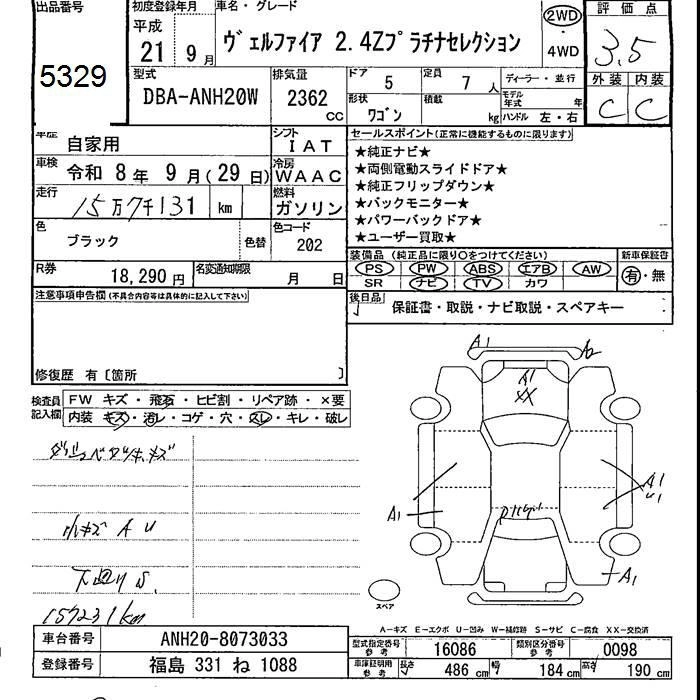 出品番号
5329
初度登録年月
平成
21 9月
車名・グレード
ヴェルファイア 2.4Zプラチナセレクション
2WD
・
4WD
評価点
3.5
外装 内装
C C
型式
DBA-ANH20W
排気量
2362
CC
ドア
5
定員
7 人
形状
ワゴン
積載
kg
ディーラー・並行
モデル
年式 年
ハンドル 左・右
車歴
自家用
シフト
IAT
車検
令和 8年 9月(29日)
冷房
WAAC
走行
15万7千131 km
燃料
ガソリン
色
ブラック
色替
色コード
202
R券
18,290 円
名変通知期限
月 日
セールスポイント(正常に機能するものに限ります)
★純正ナビ★
★両側電動スライドドア★
★純正フリップダウン★
★バックモニター★
★パワーバックドア★
★ユーザー買取★
装備品 (純正品に限り○をつけてください)
PS PW ABS エアB AW
SR ナビ TV カワ
新車保証書
有・無
後日品
保証書・取説・ナビ取説・スペアキー
注意事項申告欄(不具合内容等は具体的に記入して下さい)
修復歴 有〔箇所 〕
検査員
記入欄
FW キズ・飛石・ヒビ割・リペア跡・×要
内装 キズ・汚レ・コゲ・穴・スレ・キレ・破レ
小キズ A U
下廻り S.
157231km
A1
A2
A1
XX
A1
A1
U1
A1
スペア
A-キズ E-エクボ U-凹み W-補修跡 S-サビ C-腐食 XX-交換済
車台番号
ANH20-8073033
登録番号
福島 331 ね 1088
型式指定番号
参考
16086
類別区分番号
参考
0098
車庫証明用
参考
長さ 486 cm 幅 184 cm 高さ 190 cm